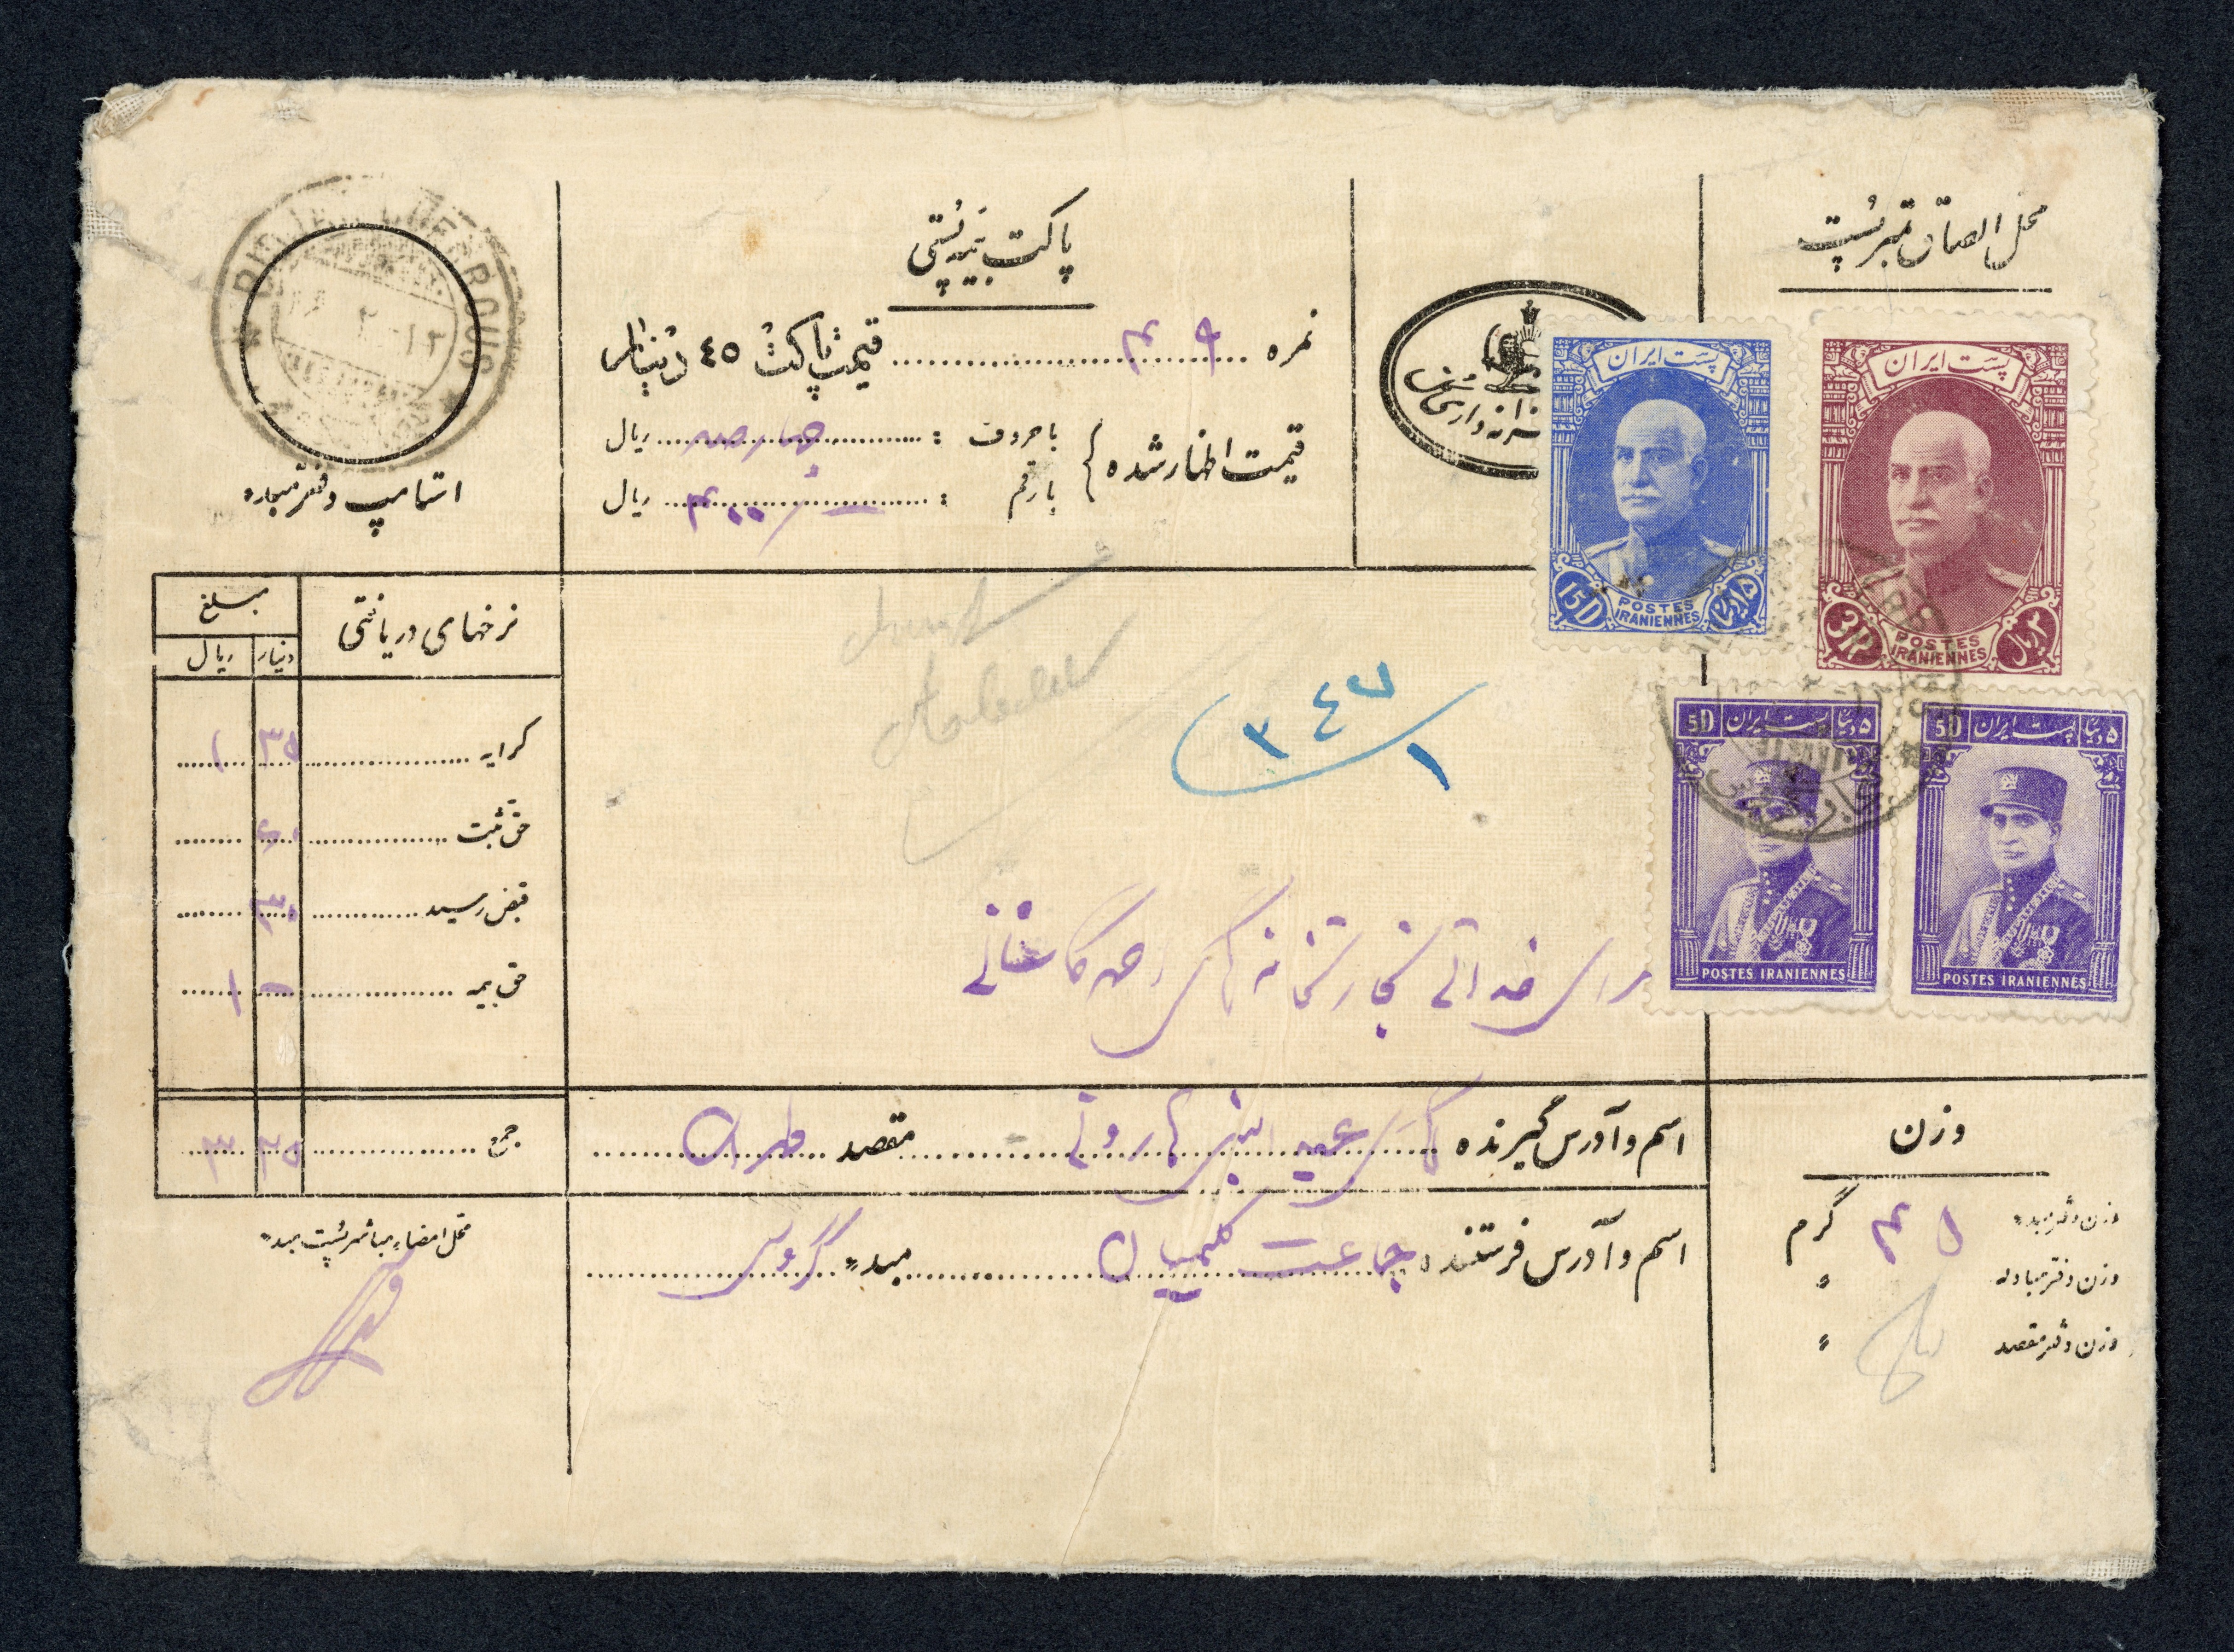 محل الصاق تمبر پست
پاکت بیمه پستی
نمره ۴۹ قیمت پاکت ٤٥ دینار
قیمت اظهار شده
با حروف : چهارصد ریال
با رقم : ۴۰۰ ریال
خزانه داری کل
پست ایران
15D
POSTES
IRANIENNES
پست ایران
3R
POSTES
IRANIENNES
۳ ریال
5D پست ایران ۵ دینار
POSTES IRANIENNES
5D پست ایران ۵ دینار
POSTES IRANIENNES
استامپ دفتر مبادله
نرخهای دریافتی
مبلغ
دینار ریال
کرایه ۳۵ ۱
حق ثبت
قبض رسید ۳۰
حق بیمه ۱
جمع ۳۵ ۳
۳٤۷
۱
تجارتخانه
کاشانی
اسم و آدرس گیرنده مقصد طهران
اسم و آدرس فرستنده جماعت کلیمیان مبدء گروس
محل امضاء مباشر پست مبدء
وزن
وزن دفتر مبدء ۴۵ گرم
وزن دفتر مبادله "
وزن دفتر مقصد "